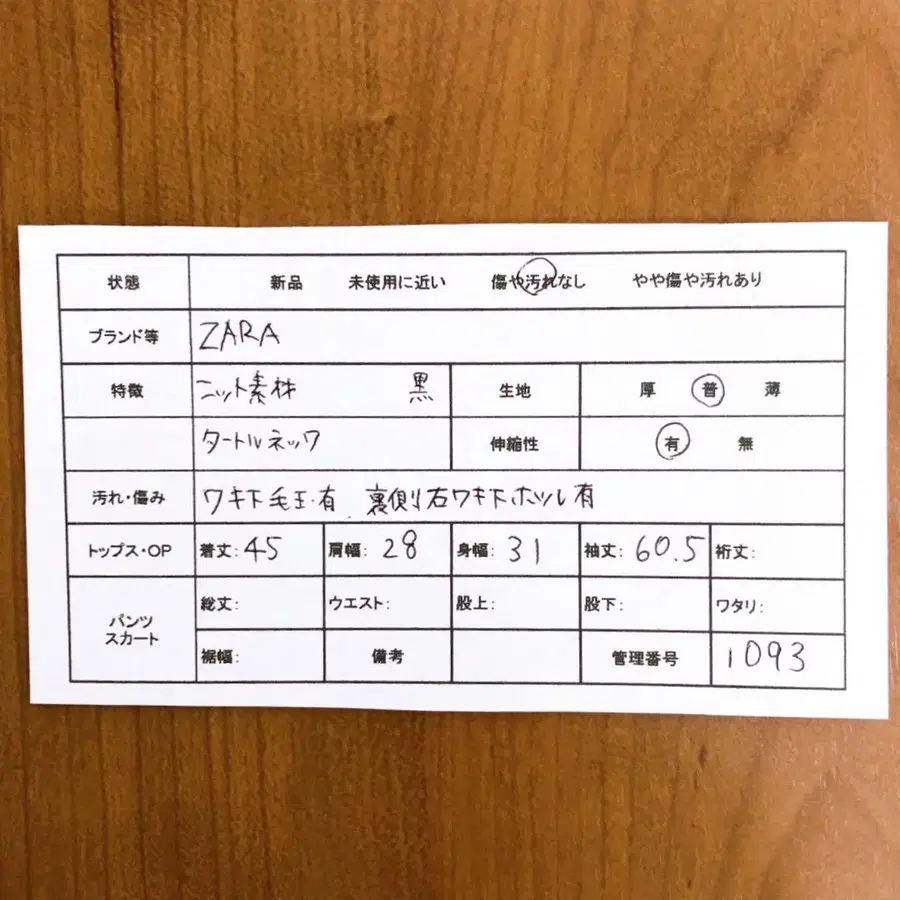 状態 新品 未使用に近い 傷や汚れなし やや傷や汚れあり
ブランド等 ZARA
特徴 ニット素材 黒 生地 厚 普 薄
タートルネック 伸縮性 有 無
汚れ・傷み ワキ下毛玉有 裏側右ワキ下ホツレ有
トップス・OP 着丈:45 肩幅:28 身幅:31 袖丈:60.5 裄丈:
パンツ
スカート
総丈: ウエスト: 股上: 股下: ワタリ:
裾幅: 備考 管理番号 1093